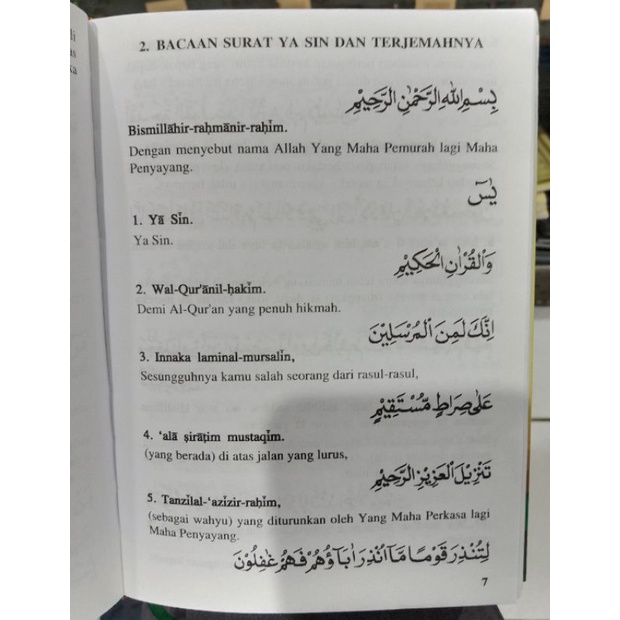 li
as
ka
2. BACAAN SURAT YA SIN DAN TERJEMAHNYA
بِسْمِ اللهِ الرَّحْمٰنِ الرَّحِيْمِ
Bismillāhir-raḥmānir-raḥīm.
Dengan menyebut nama Allah Yang Maha Pemurah lagi Maha
Penyayang.
يٰسٓ
1. Yā Sīn.
Ya Sin.
وَالْقُرْاٰنِ الْحَكِيْمِ
2. Wal-Qur'ānil-ḥakīm.
Demi Al-Qur'an yang penuh hikmah.
اِنَّكَ لَمِنَ الْمُرْسَلِيْنَ
3. Innaka laminal-mursalīn,
Sesungguhnya kamu salah seorang dari rasul-rasul,
عَلٰى صِرَاطٍ مُّسْتَقِيْمٍ
4. 'alā ṣirāṭim mustaqīm.
(yang berada) di atas jalan yang lurus,
تَنْزِيْلَ الْعَزِيْزِ الرَّحِيْمِ
5. Tanzīlal-'azīzir-raḥīm,
(sebagai wahyu) yang diturunkan oleh Yang Maha Perkasa lagi
Maha Penyayang.
لِتُنْذِرَ قَوْمًا مَّآ اُنْذِرَ اٰبَاؤُهُمْ فَهُمْ غٰفِلُوْنَ
7